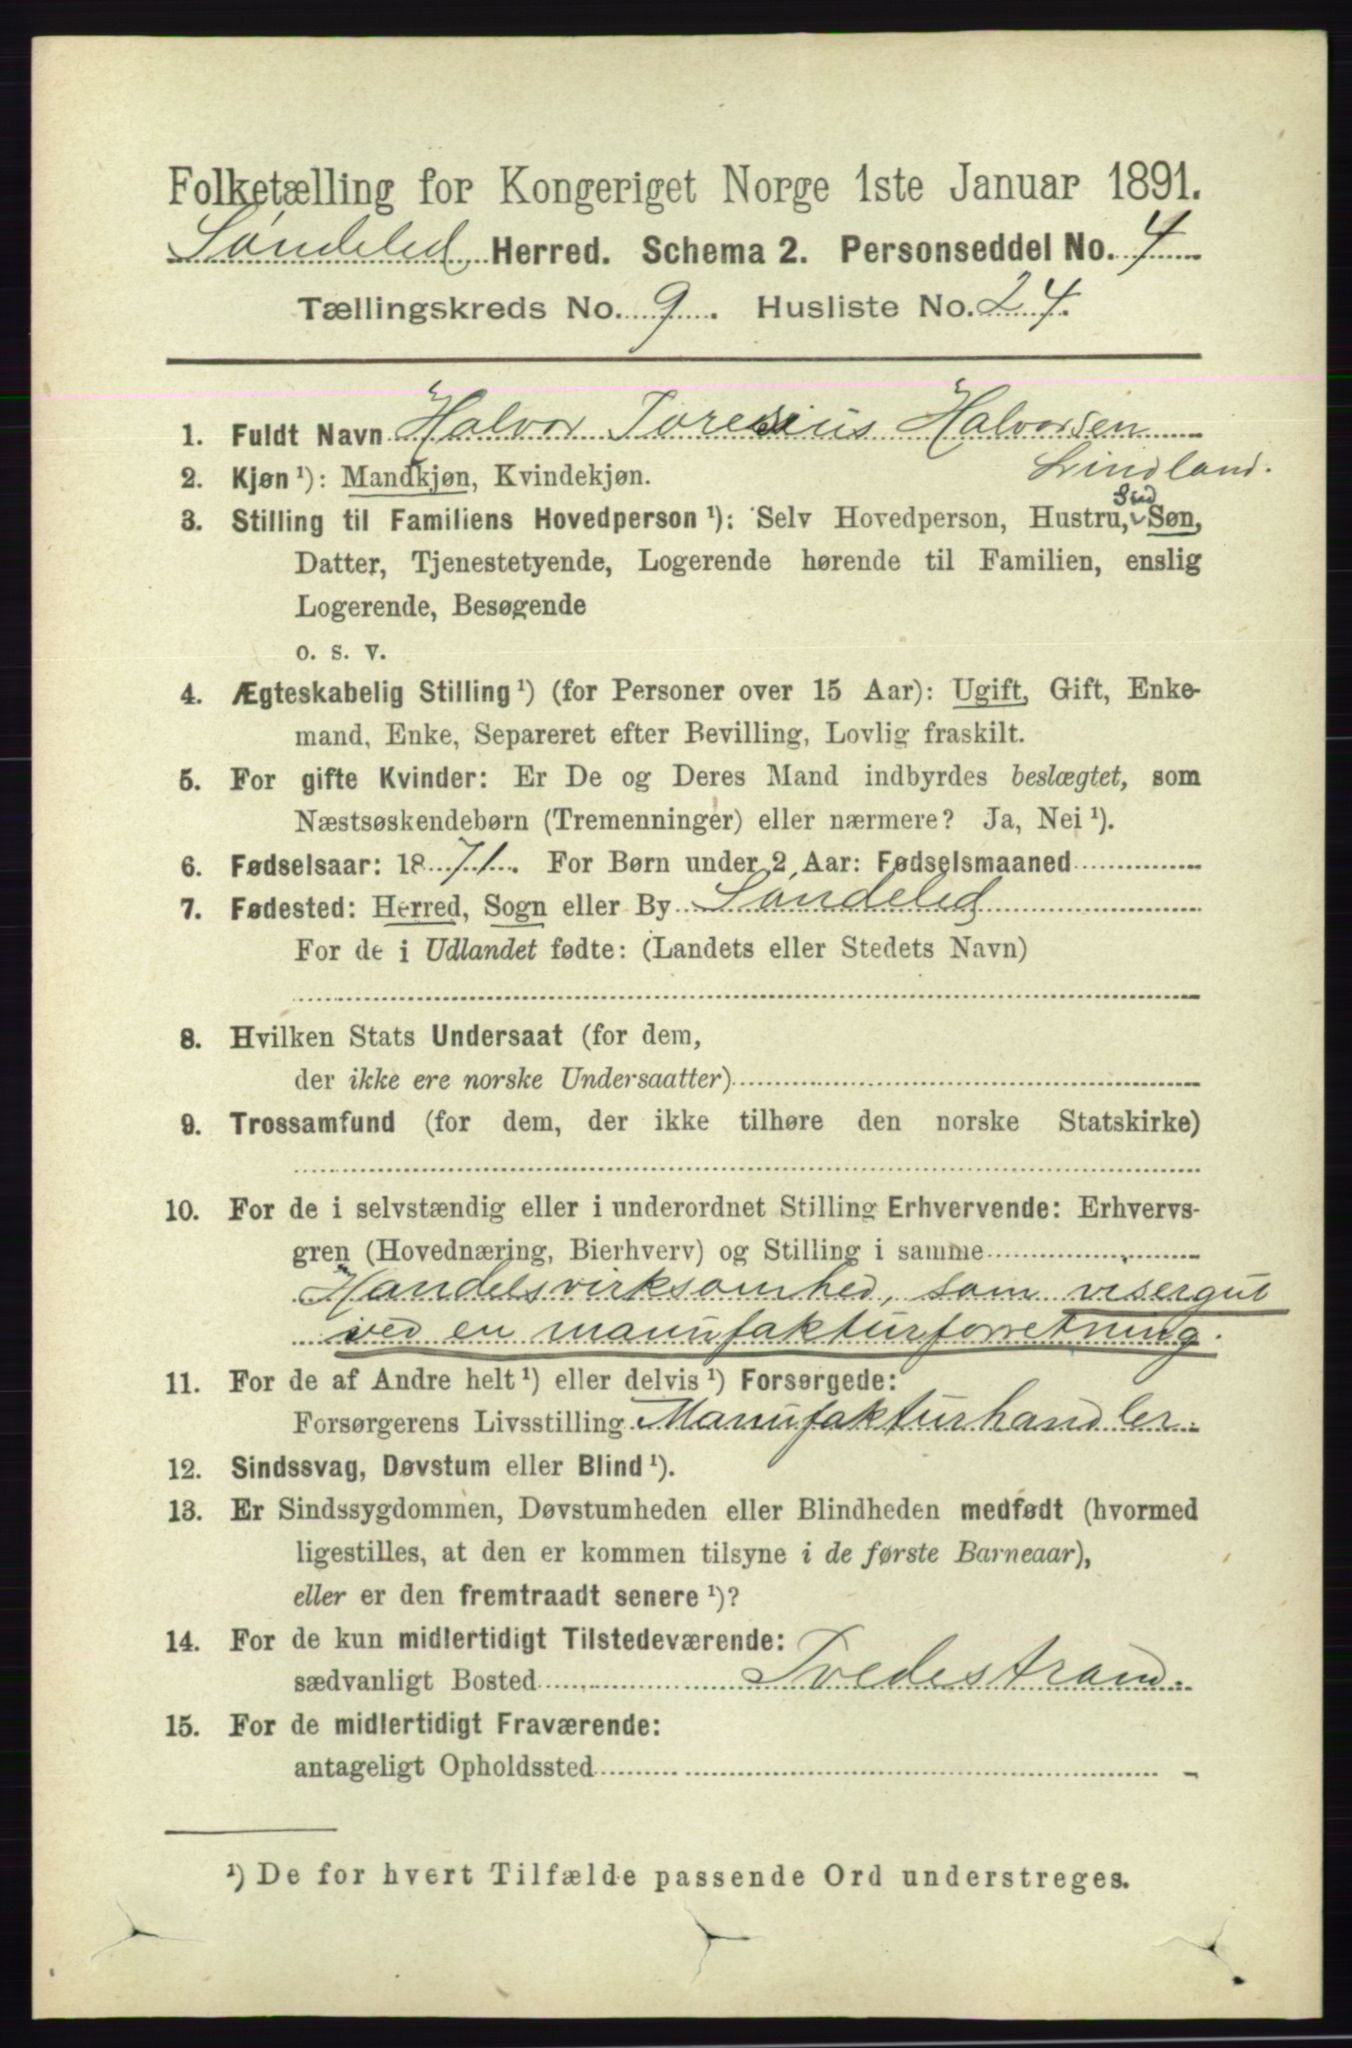 Folketælling for Kongeriget Norge 1ste Januar 1891.
Søndeled Herred. Schema 2. Personseddel No. 4
Tællingskreds No. 9. Husliste No. 24.
1. Fuldt Navn Halvor Toresius Halvorsen
Lindland.
2. Kjøn ¹): Mandkjøn, Kvindekjøn.
3. Stilling til Familiens Hovedperson ¹): Selv Hovedperson, Hustru, Sted Søn,
Datter, Tjenestetyende, Logerende hørende til Familien, enslig
Logerende, Besøgende
o. s. v.
4. Ægteskabelig Stilling ¹) (for Personer over 15 Aar): Ugift, Gift, Enke-
mand, Enke, Separeret efter Bevilling, Lovlig fraskilt.
5. For gifte Kvinder: Er De og Deres Mand indbyrdes beslægtet, som
Næstsøskendebørn (Tremenninger) eller nærmere? Ja, Nei ¹).
6. Fødselsaar: 1871. For Børn under 2 Aar: Fødselsmaaned
7. Fødested: Herred, Sogn eller By Søndeled
For de i Udlandet fødte: (Landets eller Stedets Navn)
8. Hvilken Stats Undersaat (for dem,
der ikke ere norske Undersaatter)
9. Trossamfund (for dem, der ikke tilhøre den norske Statskirke)
10. For de i selvstændig eller i underordnet Stilling Erhvervende: Erhvervs-
gren (Hovednæring, Bierhverv) og Stilling i samme
Handelsvirksomhed, som visergut
ved en manufakturforretning.
11. For de af Andre helt ¹) eller delvis ¹) Forsørgede:
Forsørgerens Livsstilling Manufakturhandler.
12. Sindssvag, Døvstum eller Blind ¹).
13. Er Sindssygdommen, Døvstumheden eller Blindheden medfødt (hvormed
ligestilles, at den er kommen tilsyne i de første Barneaar),
eller er den fremtraadt senere ¹)?
14. For de kun midlertidigt Tilstedeværende:
sædvanligt Bosted Tvedestrand.
15. For de midlertidigt Fraværende:
antageligt Opholdssted
¹) De for hvert Tilfælde passende Ord understreges.